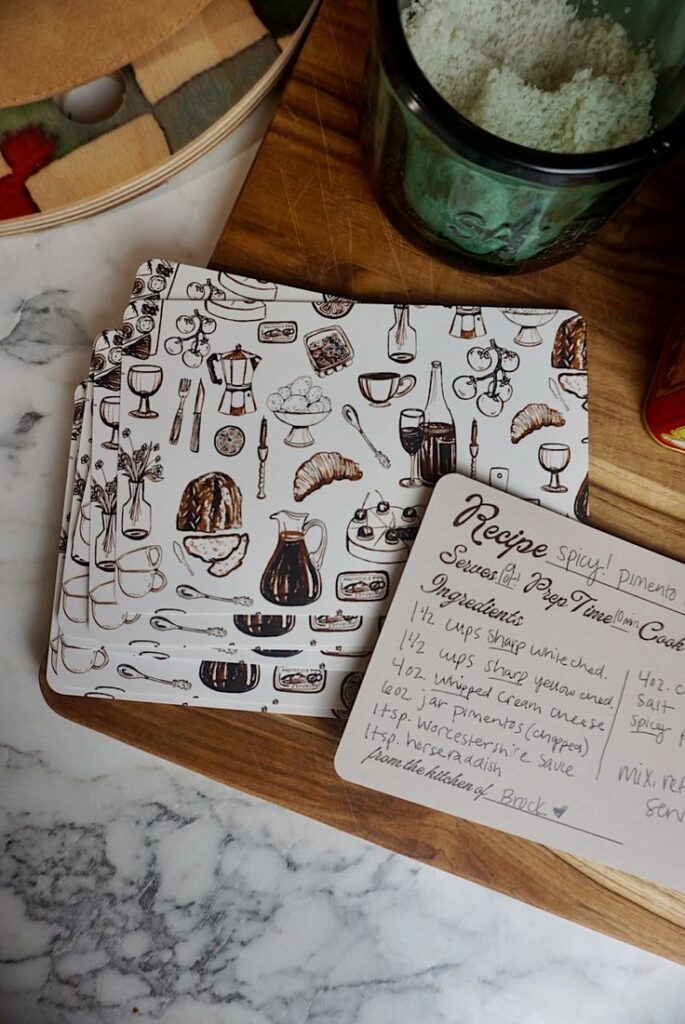 SA
Recipe spicy! pimento
Serves a lot! Prep Time 10min Cook
Ingredients
1 1/2 cups sharp white ched.
1 1/2 cups sharp yellow ched.
4oz. whipped cream cheese
6oz jar pimentos (chopped)
1 tsp. Worcestershire sauce
1 tsp. horseraddish
4oz. c
salt
spicy
mix, ref
serv
from the kitchen of Brock ♥